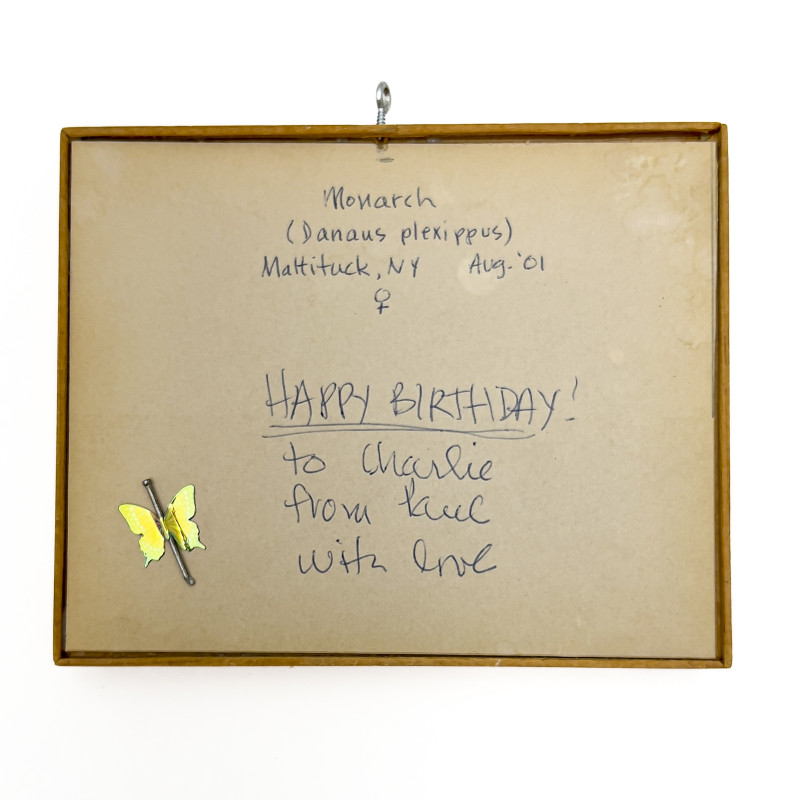 Monarch
(Danaus plexippus)
Mattituck, NY Aug. '01
♀
HAPPY BIRTHDAY!
to Charlie
from
with love